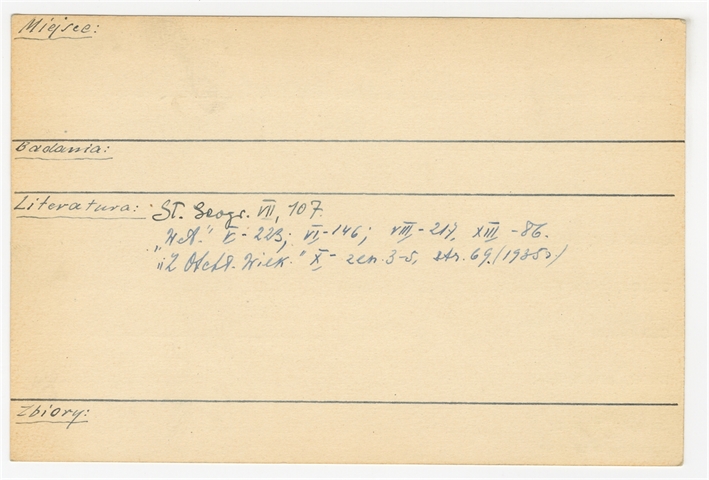 Miejsce:
Badania:
Literatura: Sł. Geogr. VII, 107.
"W.A." V-223; VI-146; VIII-217, XIII-86.
"Z Otchł. Wiek." X- zesz. 3-5, str. 69. (1935r)
Zbiory: